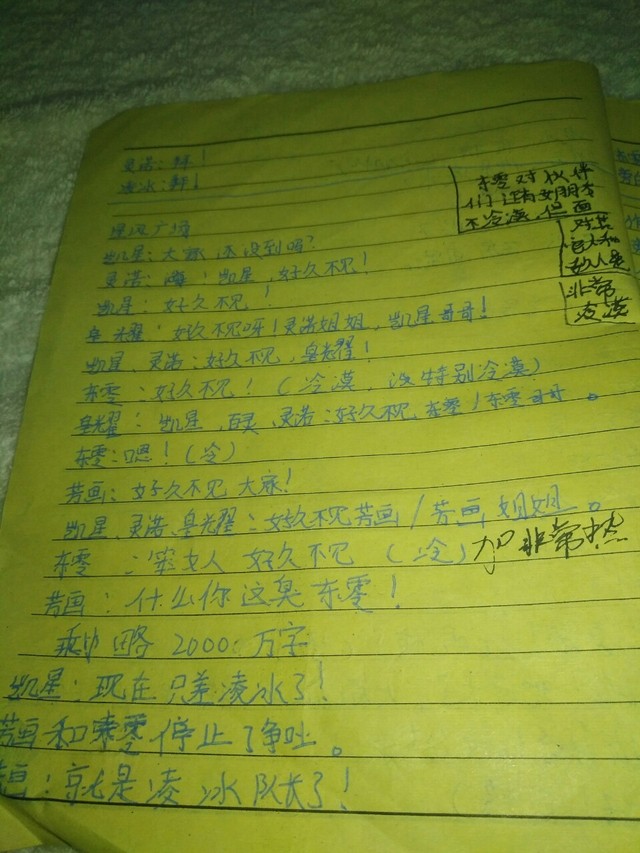 灵诺：拜！
凌冰：拜！
星风广场
凯星：大家还没到吗？
灵诺：嗨！凯星，好久不见！
凯星：好久不见！
皇光耀：好久不见呀！灵诺姐姐，凯星哥哥！
凯星、灵诺：好久不见，皇光耀！
东零：好久不见！（冷漠，没特别冷漠）
皇光耀：凯星、灵诺：好久不见，东零/东零哥哥。
东零：嗯！（冷）
芳画：好久不见 大家！
凯星、灵诺、皇光耀：好久不见芳画/芳画姐姐。
东零：笨女人 好久不见（冷）加非常
芳画：什么你这臭东零！
剩略2000万字
凯星：现在只差凌冰了！
芳画和东零停止了争吐。
画：就是凌冰队长了！
东零对伙伴
们还有女朋友
不冷漠 但面
对其
他人和
敌人是
非常
冷漠